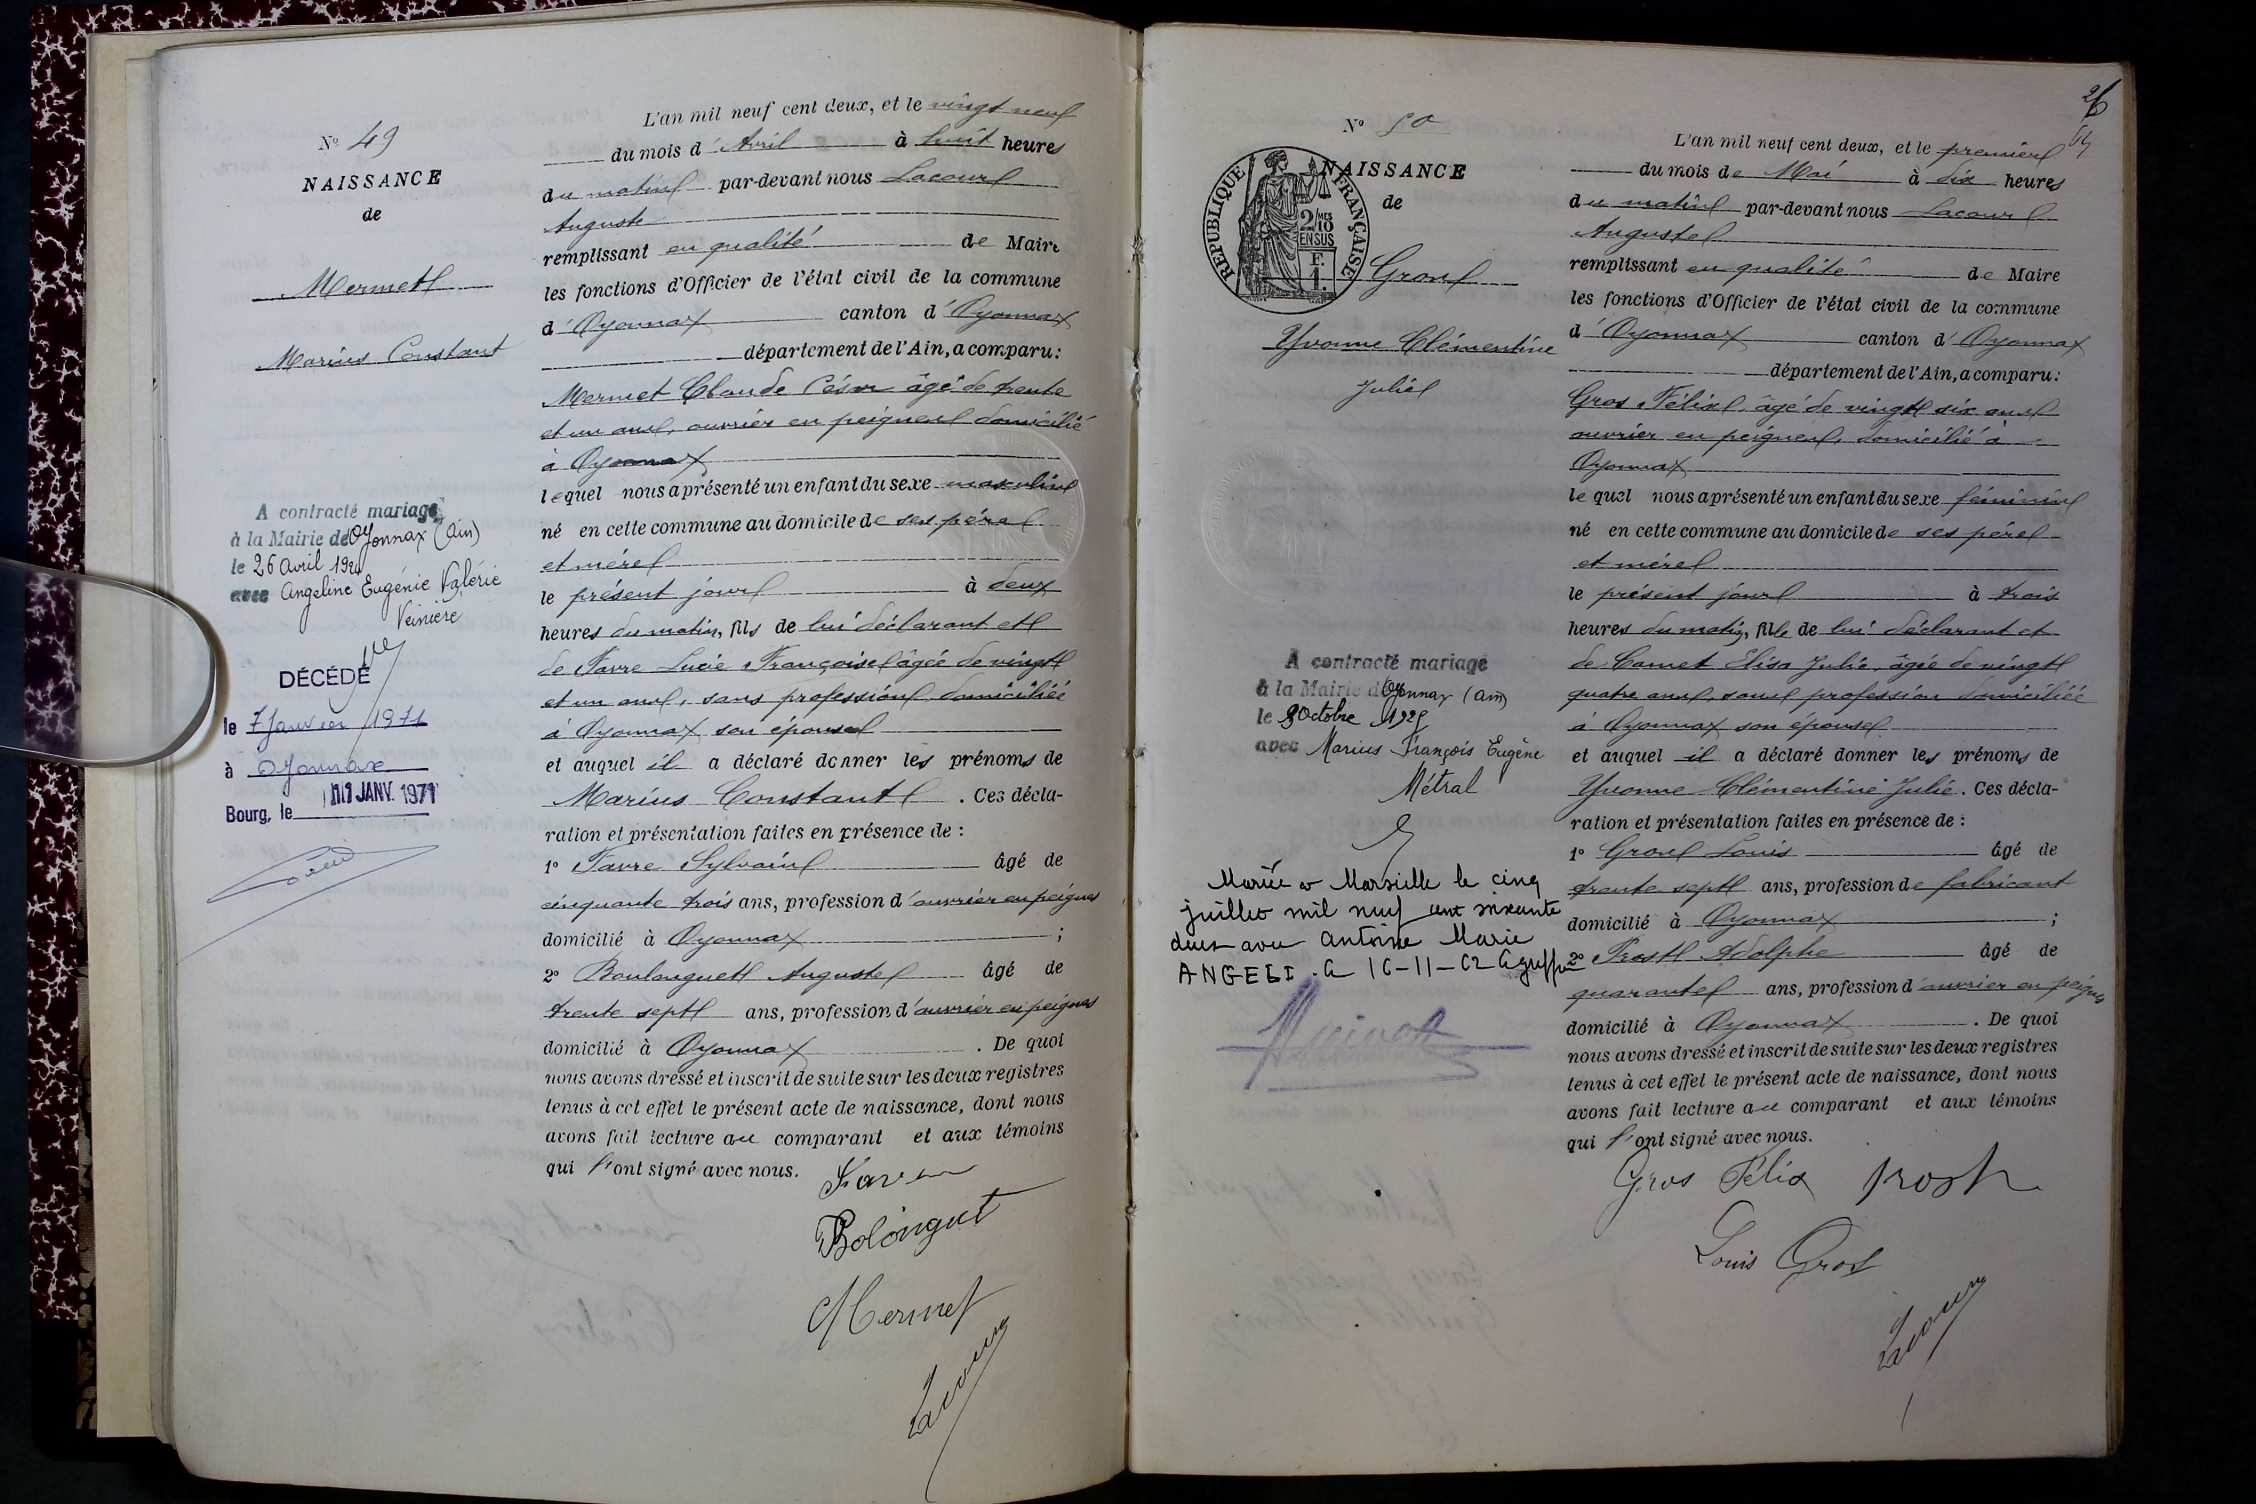 N° 49
NAISSANCE
de
Mermet
Marius Constant
A contracté mariage
à la Mairie de Oyonnax (Ain)
le 26 avril 192
avec Angeline Eugénie Valérie
Veinière
DÉCÉDÉ
le 7 Janvier 1971
à Oyonnax
Bourg, le 11 JANV. 1971
L'an mil neuf cent deux, et le vingt neuf
du mois d'Avril à huit heures
du matin par-devant nous Lacour
Auguste
remplissant en qualité de Maire
les fonctions d'Officier de l'état civil de la commune
d'Oyonnax canton d'Oyonnax
département de l'Ain, a comparu :
Mermet Claude César âgé de trente
et un ans, ouvrier en peignes domicilié
à Oyonnax
lequel nous a présenté un enfant du sexe masculin
né en cette commune au domicile de ses père
et mère
le présent jour à deux
heures du matin, fils de lui déclarant et
de Favre Lucie Françoise âgée de vingt
et un ans, sans profession domiciliée
à Oyonnax son épouse
et auquel il a déclaré donner les prénoms de
Marius Constant. Ces décla-
ration et présentation faites en présence de :
1° Favre Sylvain âgé de
cinquante trois ans, profession d'ouvrier en peignes
domicilié à Oyonnax ;
2° Boulonguet Auguste âgé de
trente sept ans, profession d'ouvrier en peignes
domicilié à Oyonnax. De quoi
nous avons dressé et inscrit de suite sur les deux registres
tenus à cet effet le présent acte de naissance, dont nous
avons fait lecture au comparant et aux témoins
qui l'ont signé avec nous.
Favre
Bolonguet
Mermet
Lacour
26
N° 50
NAISSANCE
de
RÉPUBLIQUE FRANÇAISE
2/10MES
EN SUS
F.
1.
Gros
Yvonne Clémentine
Julie
A contracté mariage
à la Mairie d'Oyonnax (Ain)
le 8 Octobre 192
avec Marius François Eugène
Métral
Mariée à Marseille le cinq
juillet mil neuf cent soixante
deux avec Antoine Marie
ANGELI. a 16-11-62
L'an mil neuf cent deux, et le premier
du mois de Mai à dix heures
du matin par-devant nous Lacour
Auguste
remplissant en qualité de Maire
les fonctions d'Officier de l'état civil de la commune
d'Oyonnax canton d'Oyonnax
département de l'Ain, a comparu :
Gros Félix, âgé de vingt six ans
ouvrier en peignes, domicilié à
Oyonnax
lequel nous a présenté un enfant du sexe féminin
né en cette commune au domicile de ses père
et mère
le présent jour à trois
heures du matin, fille de lui déclarant et
de Comet Elisa Julie, âgée de vingt
quatre ans, sans profession domiciliée
à Oyonnax son épouse
et auquel il a déclaré donner les prénoms de
Yvonne Clémentine Julie. Ces décla-
ration et présentation faites en présence de :
1° Gros Louis âgé de
trente sept ans, profession de fabricant
domicilié à Oyonnax ;
2° Prost Adolphe âgé de
quarante ans, profession d'ouvrier en peignes
domicilié à Oyonnax. De quoi
nous avons dressé et inscrit de suite sur les deux registres
tenus à cet effet le présent acte de naissance, dont nous
avons fait lecture au comparant et aux témoins
qui l'ont signé avec nous.
Gros Félix Prost
Louis Gros
Lacour